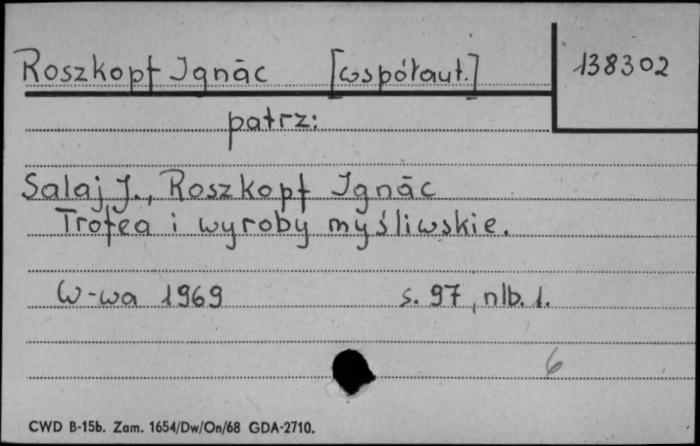 Roszkopf Ignāc [współaut.] 138302
patrz:
Salaj J., Roszkopf Ignāc
Trofea i wyroby myśliwskie.
W-wa 1969 s. 97, nlb. 1.
6
CWD B-15b. Zam. 1654/Dw/On/68 GDA-2710.